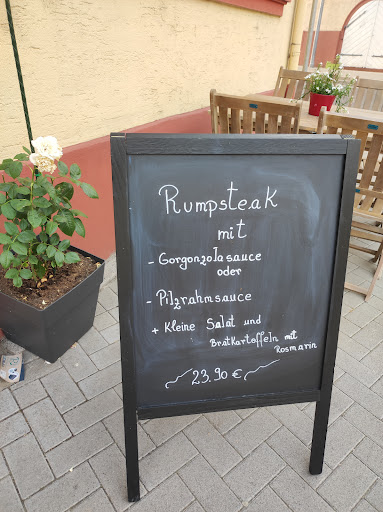 Rumpsteak
mit
- Gorgonzolasauce
oder
- Pilzrahmsauce
+ Kleine Salat und
Bratkartoffeln mit
Rosmarin
23.90 €